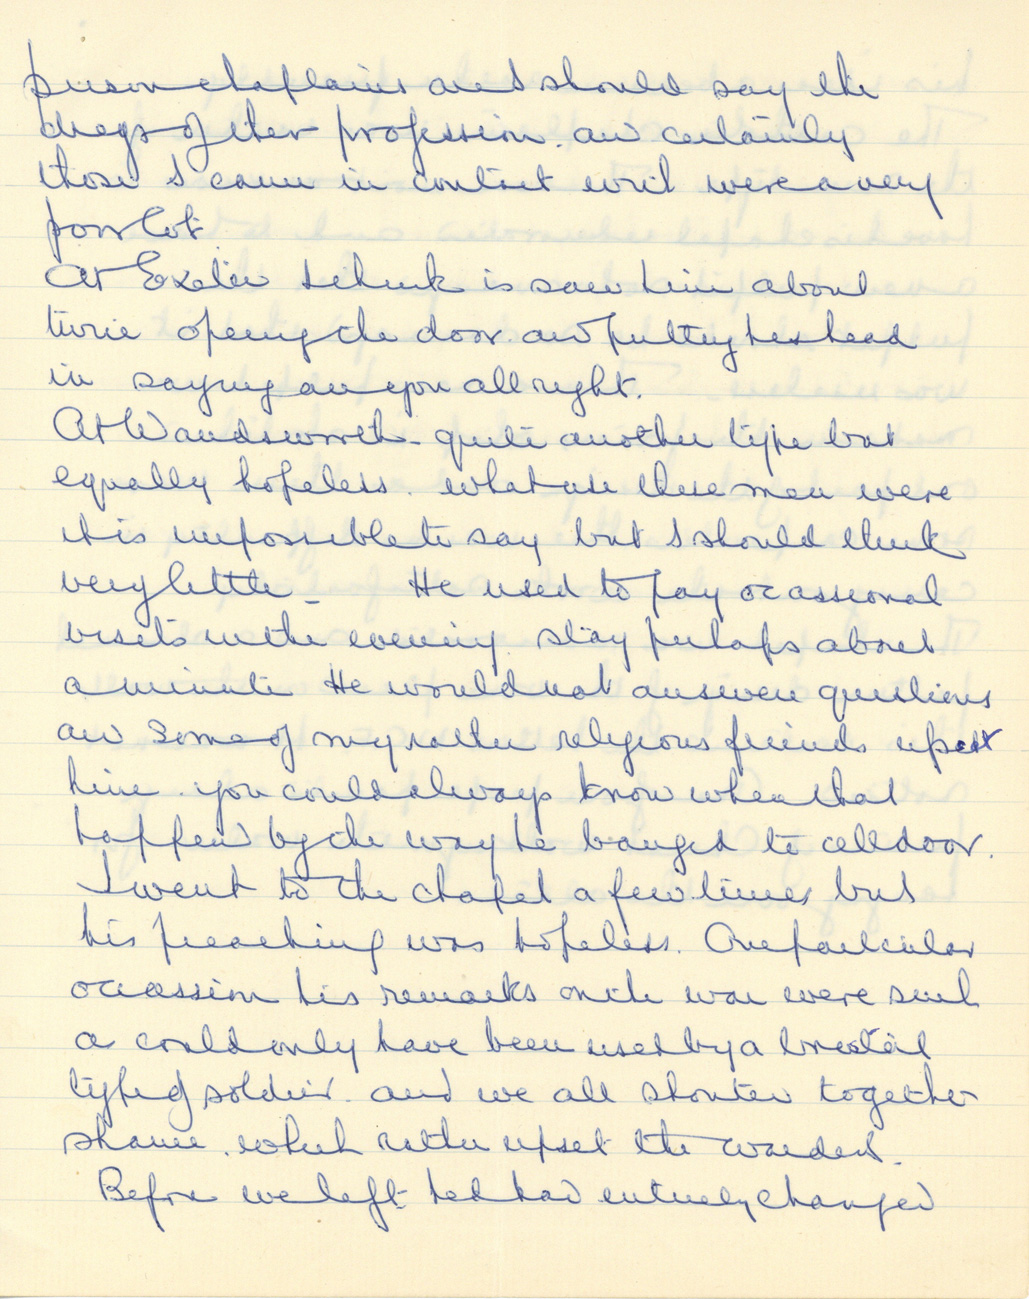 prison chaplains are I should say the
dregs of their profession. and certainly
those I came in contact with were a very
poor lot.
At Exeter I think is saw him about
twice opening the door. and putting his head
in saying are you all right.
At Wandsworth - quite another type but
equally hopeless. what use these men were
it is impossible to say but I should think
very little - He used to pay occassional
visits in the evening. stay perhaps about
a minute He would not answer questions
and some of my rather religious friends upset
him you could always know when that
happend by the way he banged to cell door.
I went to the chapel a few times but
his preaching was hopeless. One particular
occassion his remarks on the war were such
a could only have been used by a brutal
type of soldier. and we all shouted together
shame. which rather upset the warders.
Before we left he had entirely changed